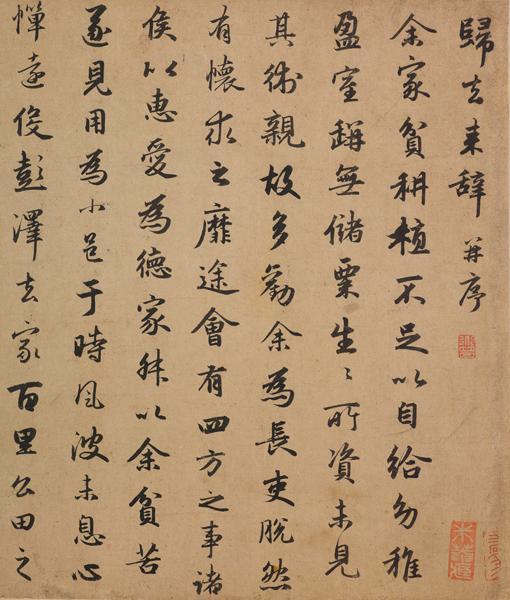 歸去来辞 并序
余家貧耕植不足以自給幼稚
盈室缾無儲粟生々所資未見
其術親故多勸余為長吏脫然
有懷求之靡途會有四方之事諸
侯以惠愛為德家叔以余貧苦
遂見用為小邑于時風波未息心
憚遠役彭澤去家百里公田之